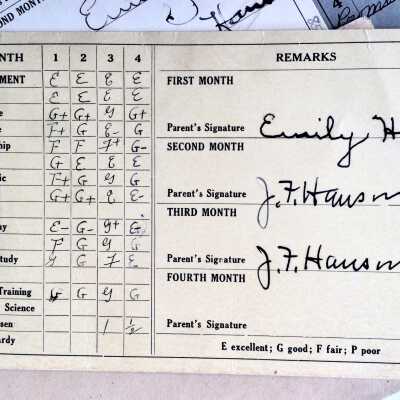 OND MONTH
Emily
J. Hans
NTH 1 2 3 4 REMARKS
MENT E E E E FIRST MONTH
E E E E
e G+ G+ G G+
e F+ G E- G Parent's Signature Emily H
hip F F F+ G- SECOND MONTH
G E E E
ic F+ G G G Parent's Signature J.F. Hanson
G+ G+ E E- THIRD MONTH
hy E- G- G+ G
F G G G Parent's Signature J.F. Hanson
tudy G G F E FOURTH MONTH
Training G G G
Science
sen 1 1/2 Parent's Signature
ardy
E excellent; G good; F fair; P poor